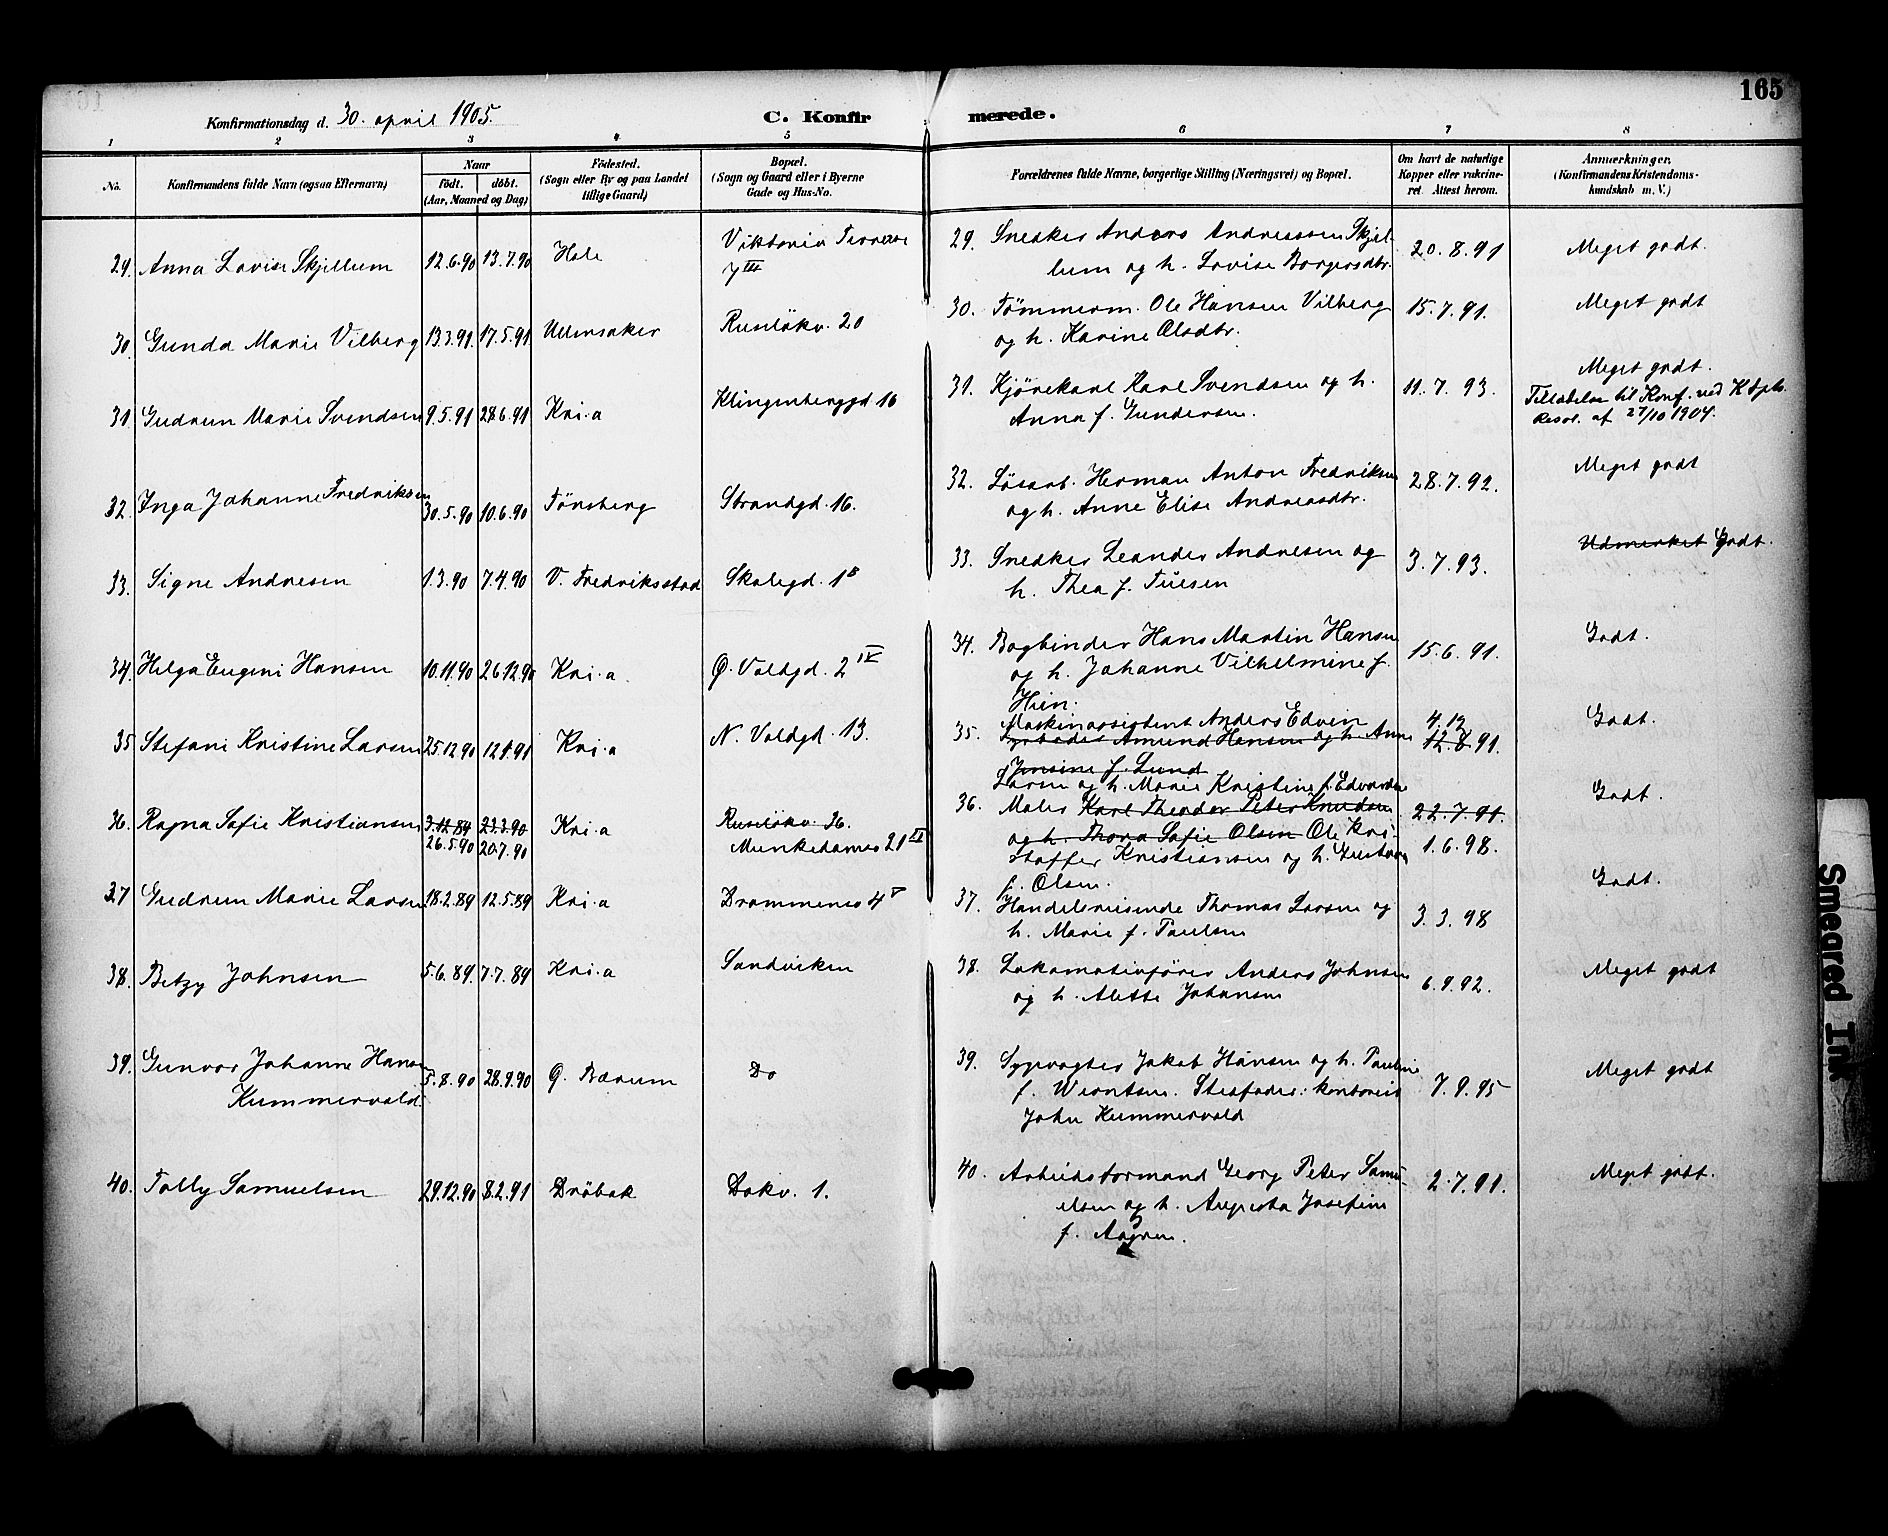 165
Konfirmationsdag d. 30. april 1905.
C. Konfirmerede.
1 2 3 4 5 6 7 8
No.
Konfirmandens fulde Navn (ogsaa Efternavn)
Naar
født. døbt.
(Aar, Maaned og Dag)
Fødested.
(Sogn eller By og paa Landet
tillige Gaard)
Bopæl.
(Sogn og Gaard eller i Byerne
Gade og Hus-No.
Forældrenes fulde Navne, borgerlige Stilling (Næringsvei) og Bopæl.
Om havt de naturlige
Kopper eller vakcine-
ret. Attest herom.
Anmærkninger.
(Konfirmandens Kristendoms-
kundskab m. V.)
29. Anna Lovise Skjellum 12.6.90 13.7.90 Hole Viktoria Terrasse
7 III
29. Snedker Anders Andreassen Skjel-
lum og h. Lovise Borgersdtr. 20.8.91 Meget godt.
30. Gunda Marie Vilberg 13.3.91. 17.5.91 Ullensaker Ruseløkv. 20
30. Tømmerm. Ole Hansen Vilberg
og h. Karine Olsdtr. 15.7.91. Meget godt
31. Gudrun Marie Svendsen 9.5.91 28.6.91 Kri.a Klingenberggd 16
31. Kjørekarl Karl Svendsen og h.
Anna f. Gundersen. 11.7.93. Meget godt.
Tilladelse til Konf. ved Kdpts.
Resol. af 27/10 1904.
32. Inga Johanne Fredriksen 30.5.90 10.6.90 Tønsberg Strandgd. 16.
32. Løsarb. Herman Anton Fredriksen
og h. Anne Elise Andreasdtr. 28.7.92. Meget godt
33. Signe Andresen 1.3.90 7.4.90 V. Fredriksstad Skolegd. 1 B
33. Snedker Leander Andresen og
h. Thea f. Tuesen 3.7.93. Udmerket Godt.
34. Helga Eugeni Hansen 10.11.90 26.12.90 Kri.a. Ø. Voldgd. 2 IV
34. Bogbinder Hans Martin Hansen
og h. Johanne Vilhelmine f.
Hien. 15.6.91. Godt.
35 Stefani Kristine Larsen 25.12.90 12.4.91 Kri.a N. Voldgd. 13.
35. Maskinassistent Anders Edvin
Amund Hansen og h. Anne
Jensine f. Lund
Larsen og h. Marie Kristine f. Edvardsen
4.12
12.8.91. Godt.
36. Ragna Sofie Kristiansen 3.12.89 23.3.90
26.5.90 20.7.90 Kri.a Ruseløkv. 36.
Munkedamsv 21 II
36. Maler Karl Theodor Peter Knudsen
og h. Thora Sofie Olsen Ole Kri-
stoffer Kristiansen og h. Gustava
f. Olsen. 22.7.91.
1.6.98. Godt.
37 Gudrun Marie Larsen 18.2.89 12.5.89 Kri.a Drammensv 4 V
37. Handelsreisende Thomas Larsen og
h. Marie f. Paulsen 3.3.98 Godt.
38. Betzy Johnsen 5.6.89. 7.7.89 Kri.a Sandviken
38. Lokomotivfører Anders Johnsen
og h. Alette Johansen 6.9.92. Meget godt
39. Gunvor Johanne Hansen
Kummervold. 5.8.90 28.9.90 Ø. Bærum Do
39. Sypvagter Jakob Hansen og h. Pauline
f. Werntsen. Stedfader: kontorist
John Kummervold 7.9.95 Meget godt
40. Tolly Samuelsen 29.12.90 8.2.91 Drøbak Dokv. 1.
40. Arbeidsformand Georg Peter Samu-
elsen og h. Augusta Josefine
f. Aagren. 2.7.91. Meget godt.
Smeared Ink